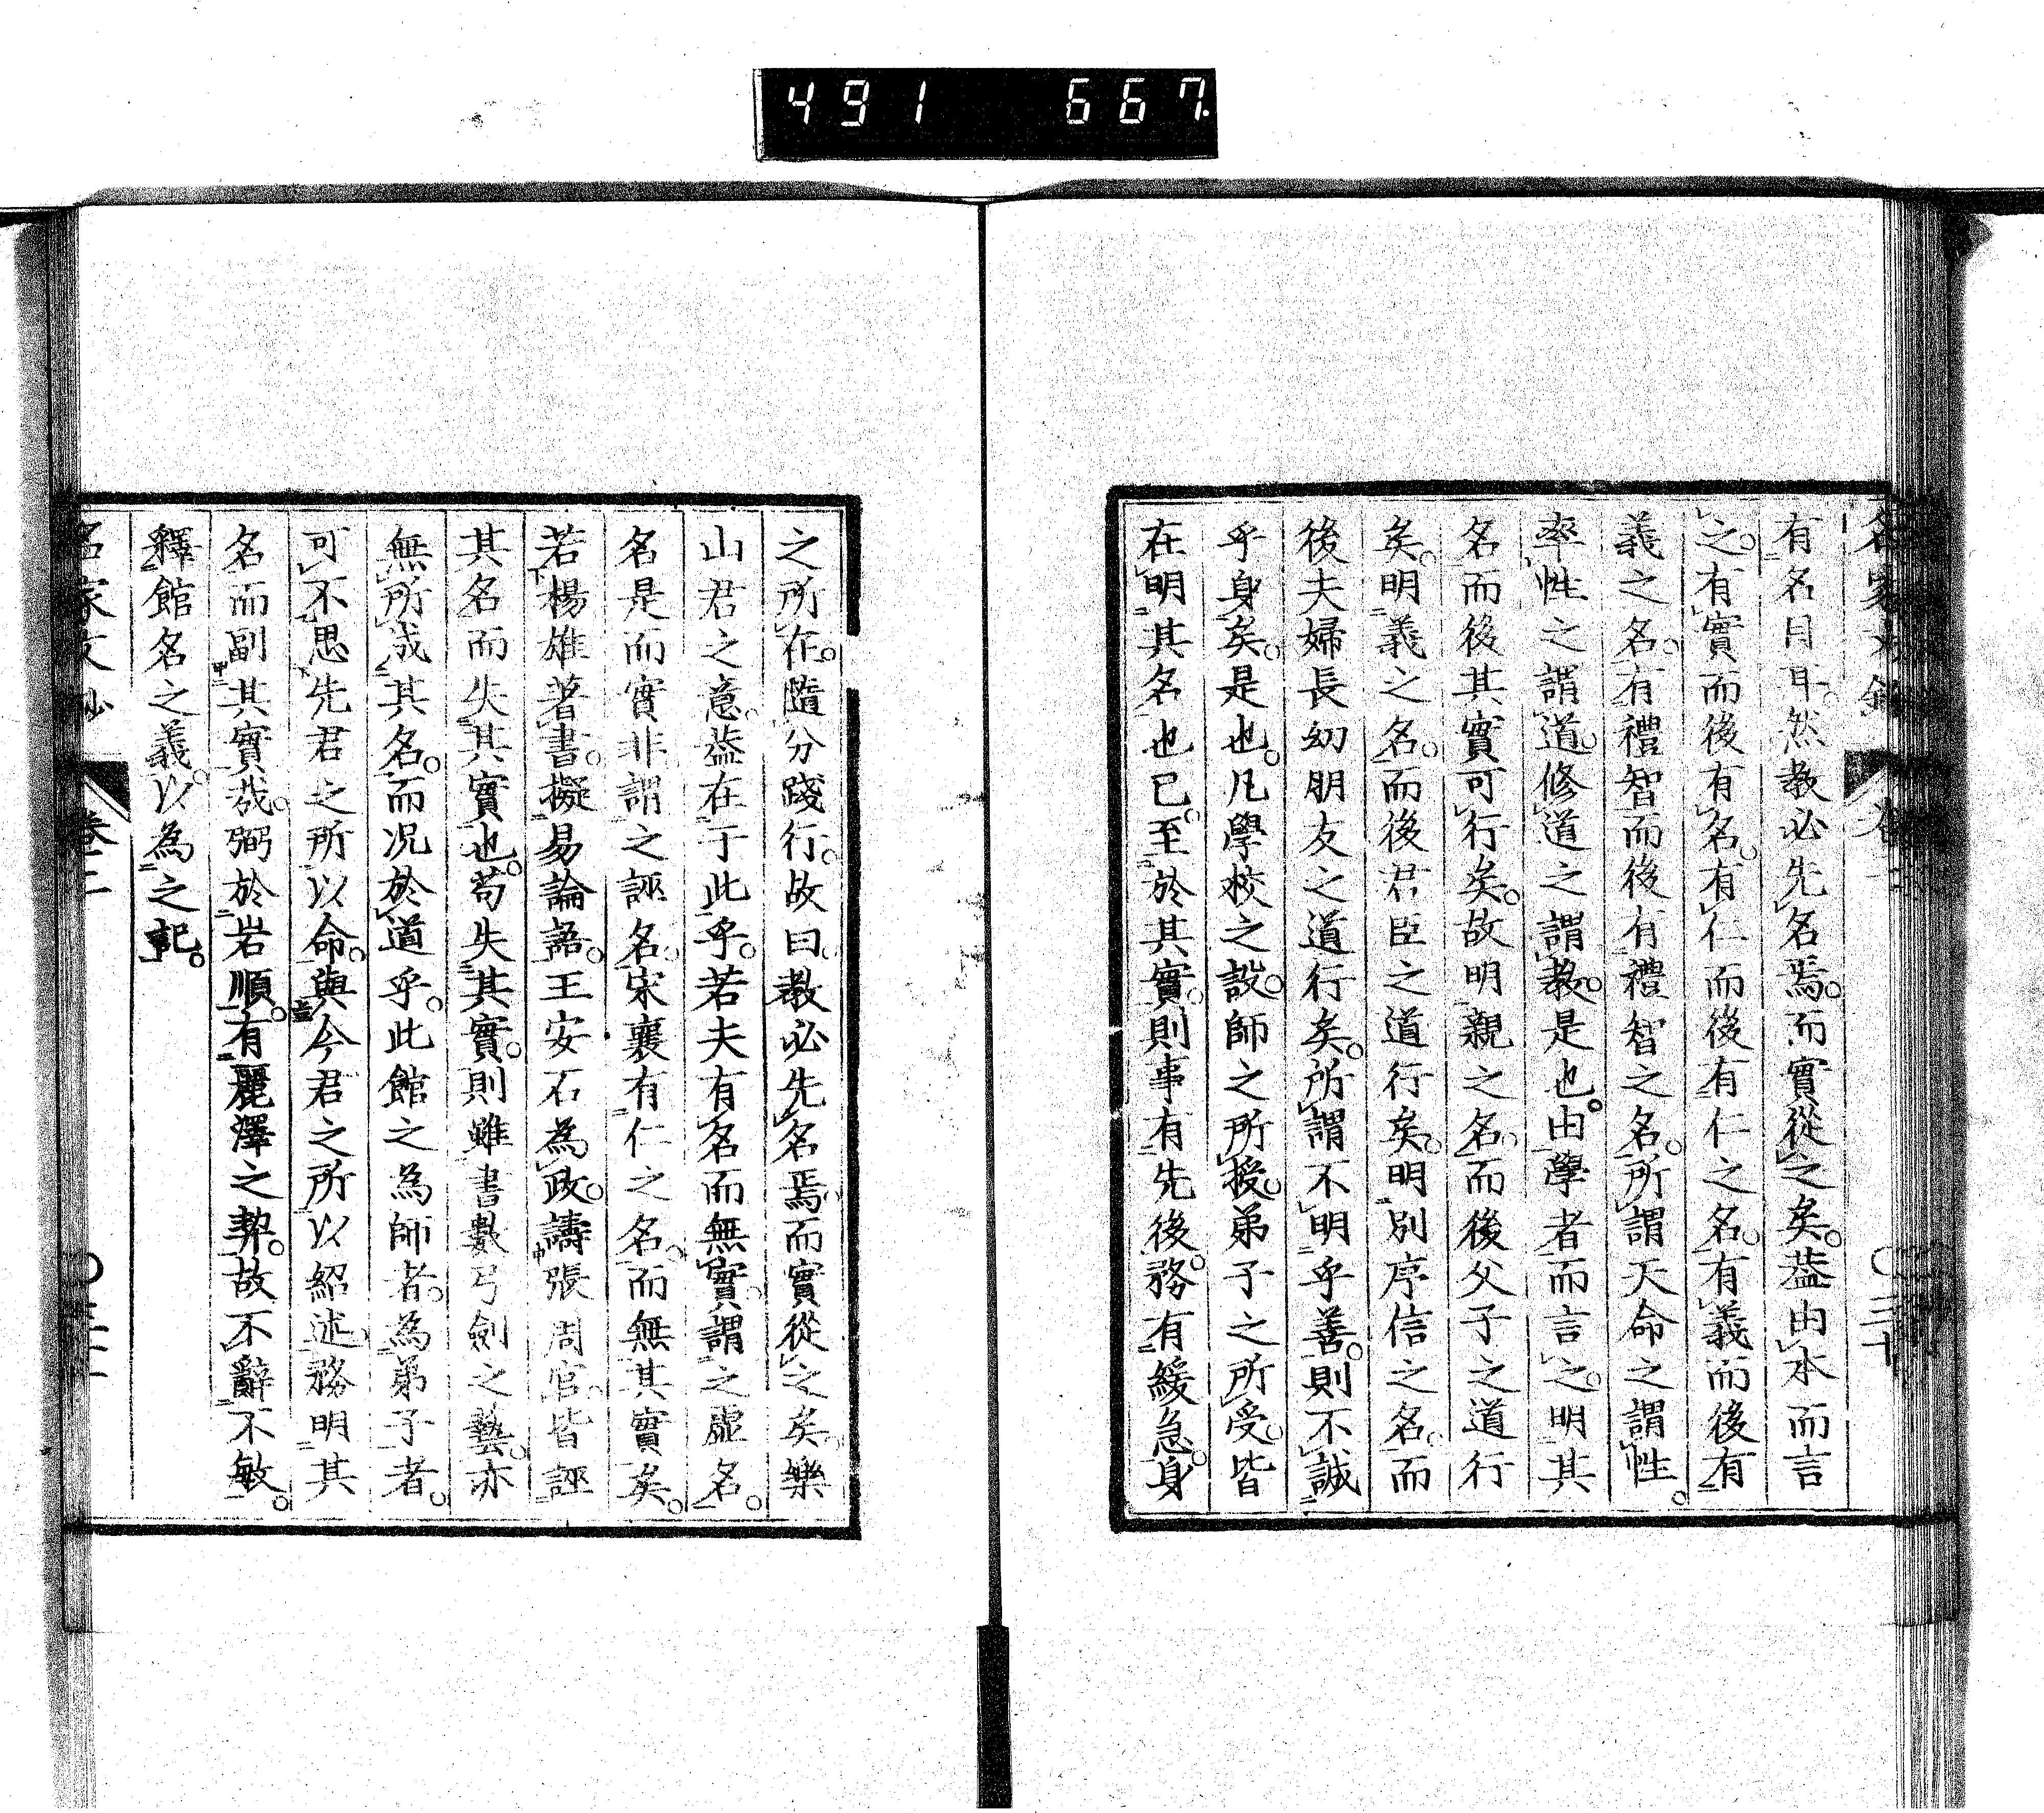 491 667
有名目耳。然教必先名焉。而實從之矣。蓋由本而言
之。有實而後有名。有仁而後有仁之名。有義而後有
義之名。有禮智而後有禮智之名。所謂天命之謂性。
率性之謂道。修道之謂教。是也。由學者而言之。明其
名而後其實可行矣。故明親之名。而後父子之道行
矣。明義之名。而後君臣之道行矣。明別序信之名。而
後夫婦長幼朋友之道行矣。所謂不明乎善。則不誠
乎身矣。是也。凡學校之設。師之所授。弟子之所受。皆
在明其名也已。至於其實。則事有先後。務有緩急。身
之所在。隨分踐行。故曰教必先名焉。而實從之矣。樂
山君之意。蓋在于此乎。若夫有名而無實。謂之虛名。
名是而實非。謂之誣名。宋襄有仁之名。而無其實矣。
若楊雄著書。擬易論語。王安石為政。譸張周官。皆誣
其名而失其實也。苟失其實。則雖書數弓劍之藝。亦
無所成其名。而況於道乎。此館之為師者。為弟子者。
可不思先君之所以命。與今君之所以紹述。務明其
名而副其實哉。弼於岩順。有麗澤之契。故不辭不敏。
釋館名之義。以為之記。
名家文抄 卷二 〇三十一